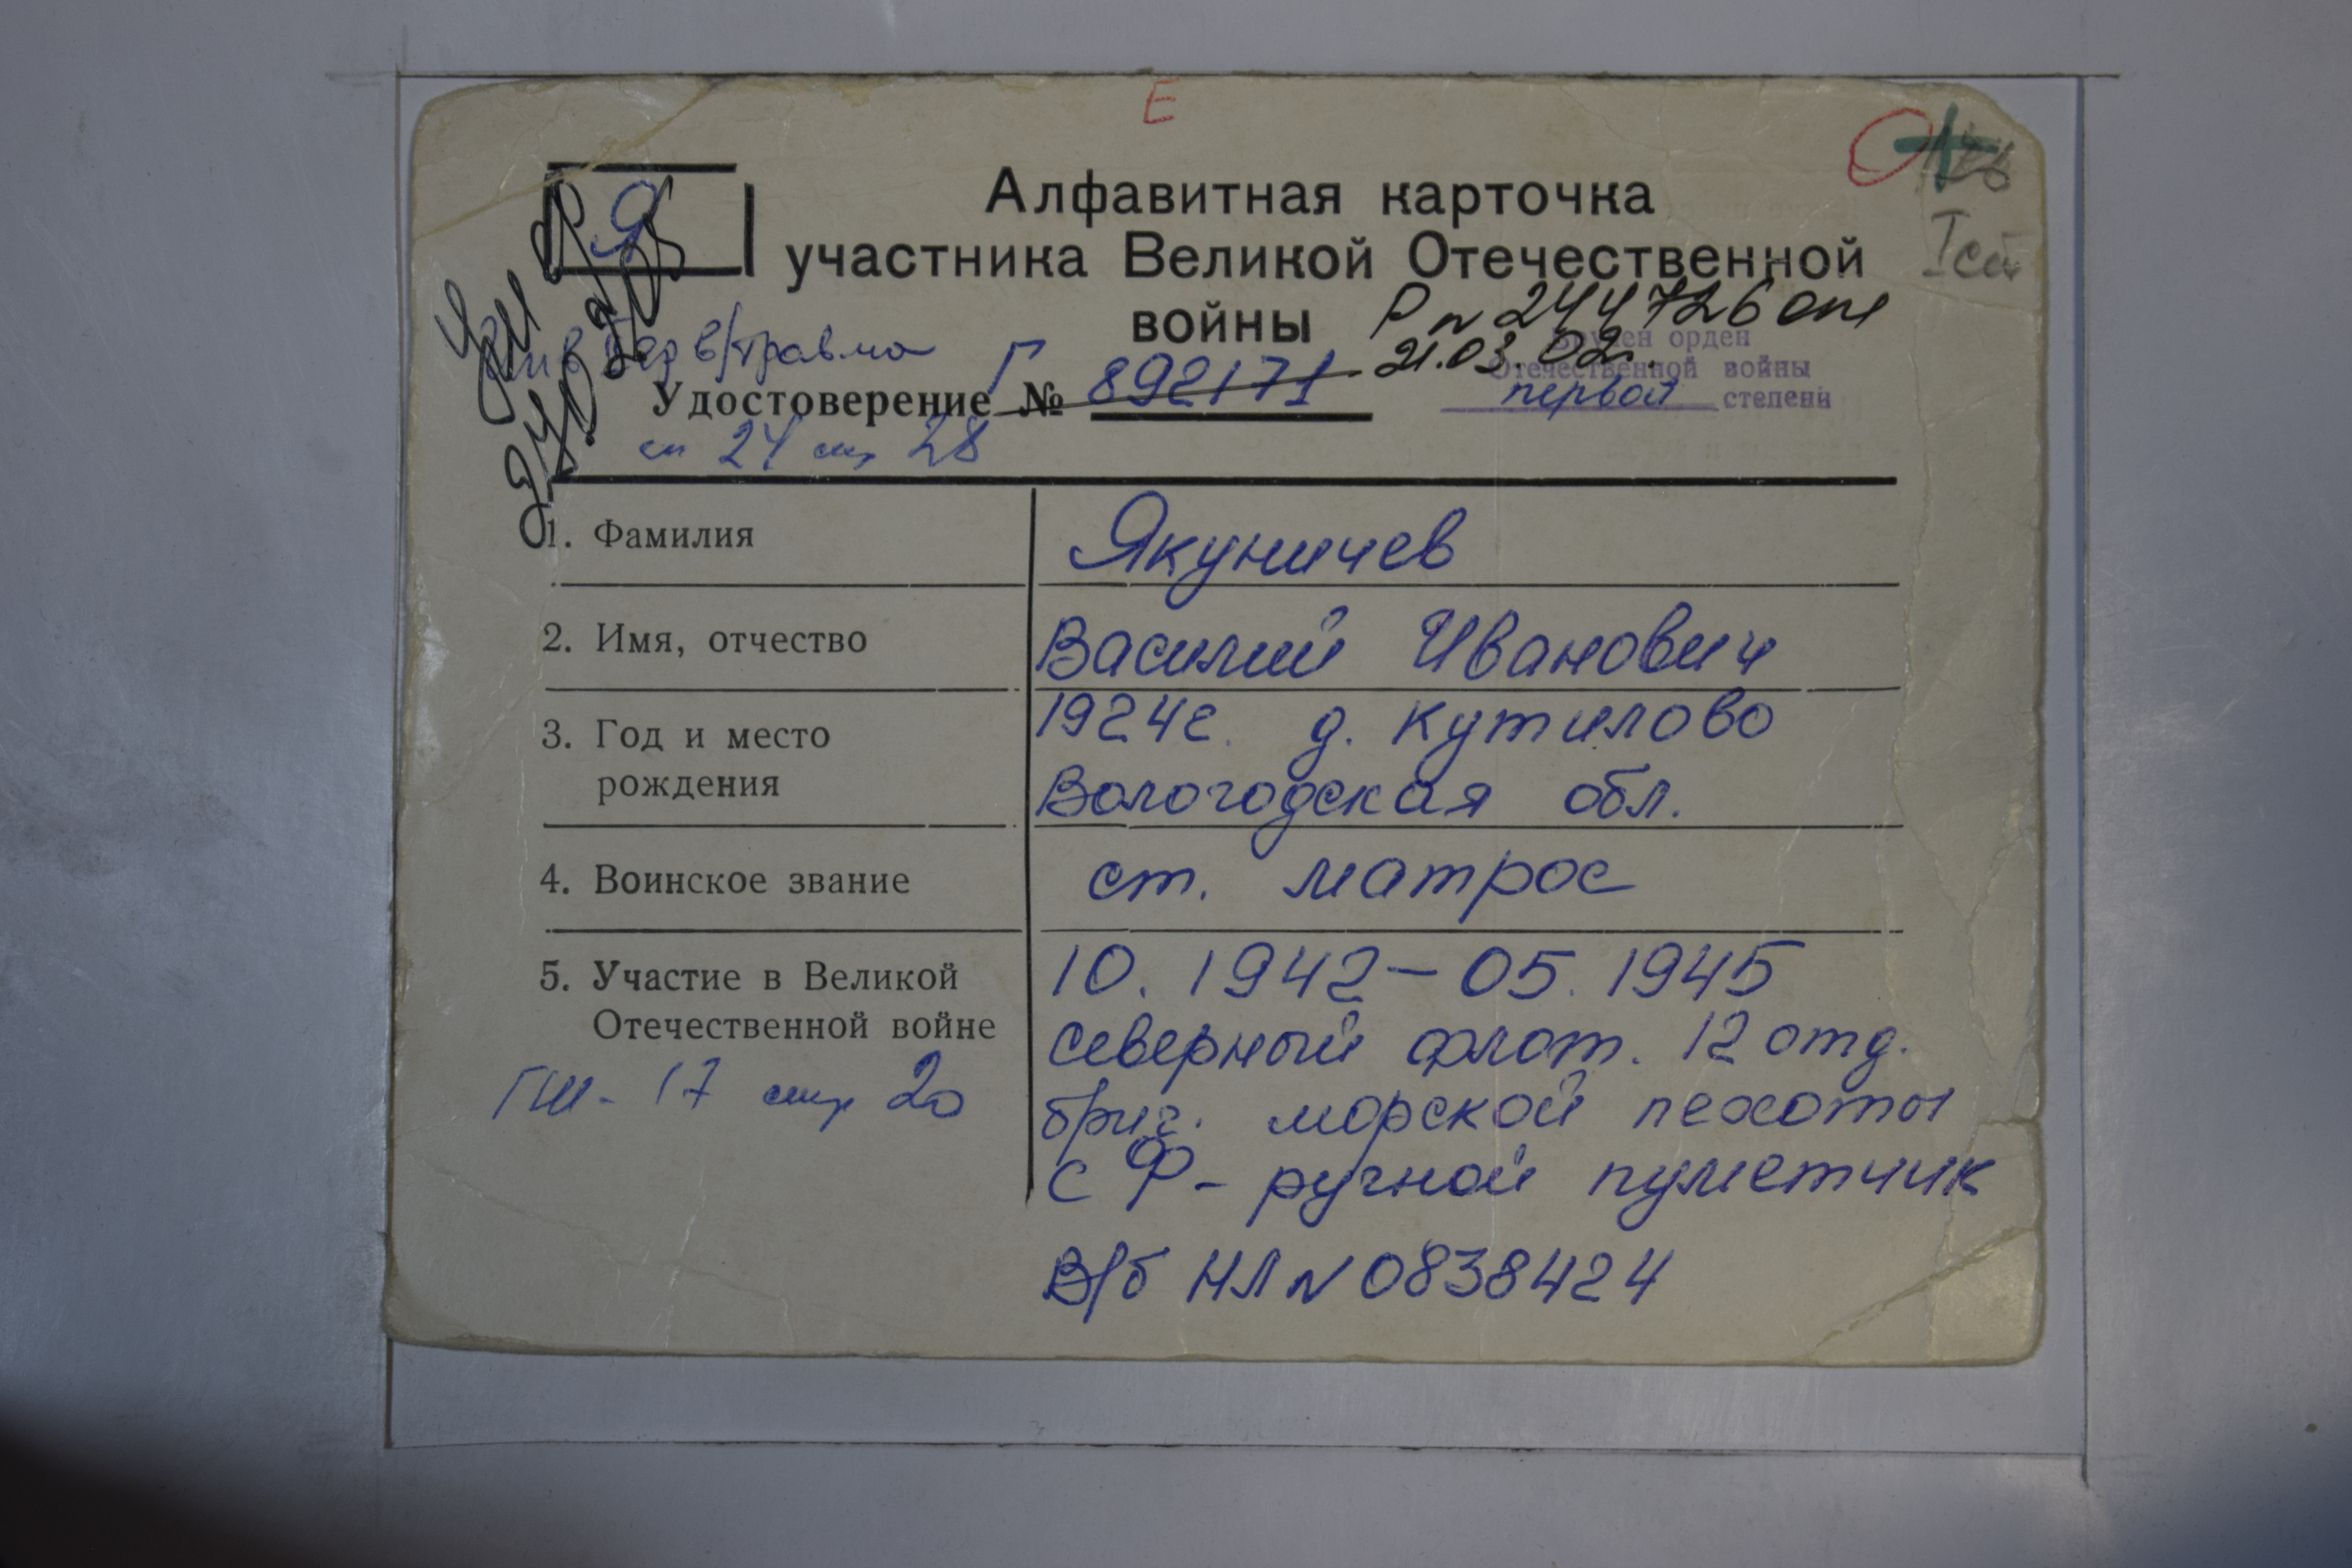 Е
Я
Алфавитная карточка
участника Великой Отечественной
войны
Р № 244726
21.03.02г.
Вручен орден
Отечественной войны
первой степени
Iст
в/травма
Удостоверение № Г 892171
сп 24 стр 28
1. Фамилия Якуничев
2. Имя, отчество Василий Иванович
3. Год и место 1924г. д. Кутилово
рождения Вологодская обл.
4. Воинское звание ст. матрос
5. Участие в Великой 10. 1942 – 05. 1945
Отечественной войне Северный флот. 12 отд.
17 стр 20 бриг. морской пехоты
СФ - ручной пулметчик
В/б НЛ № 0838424